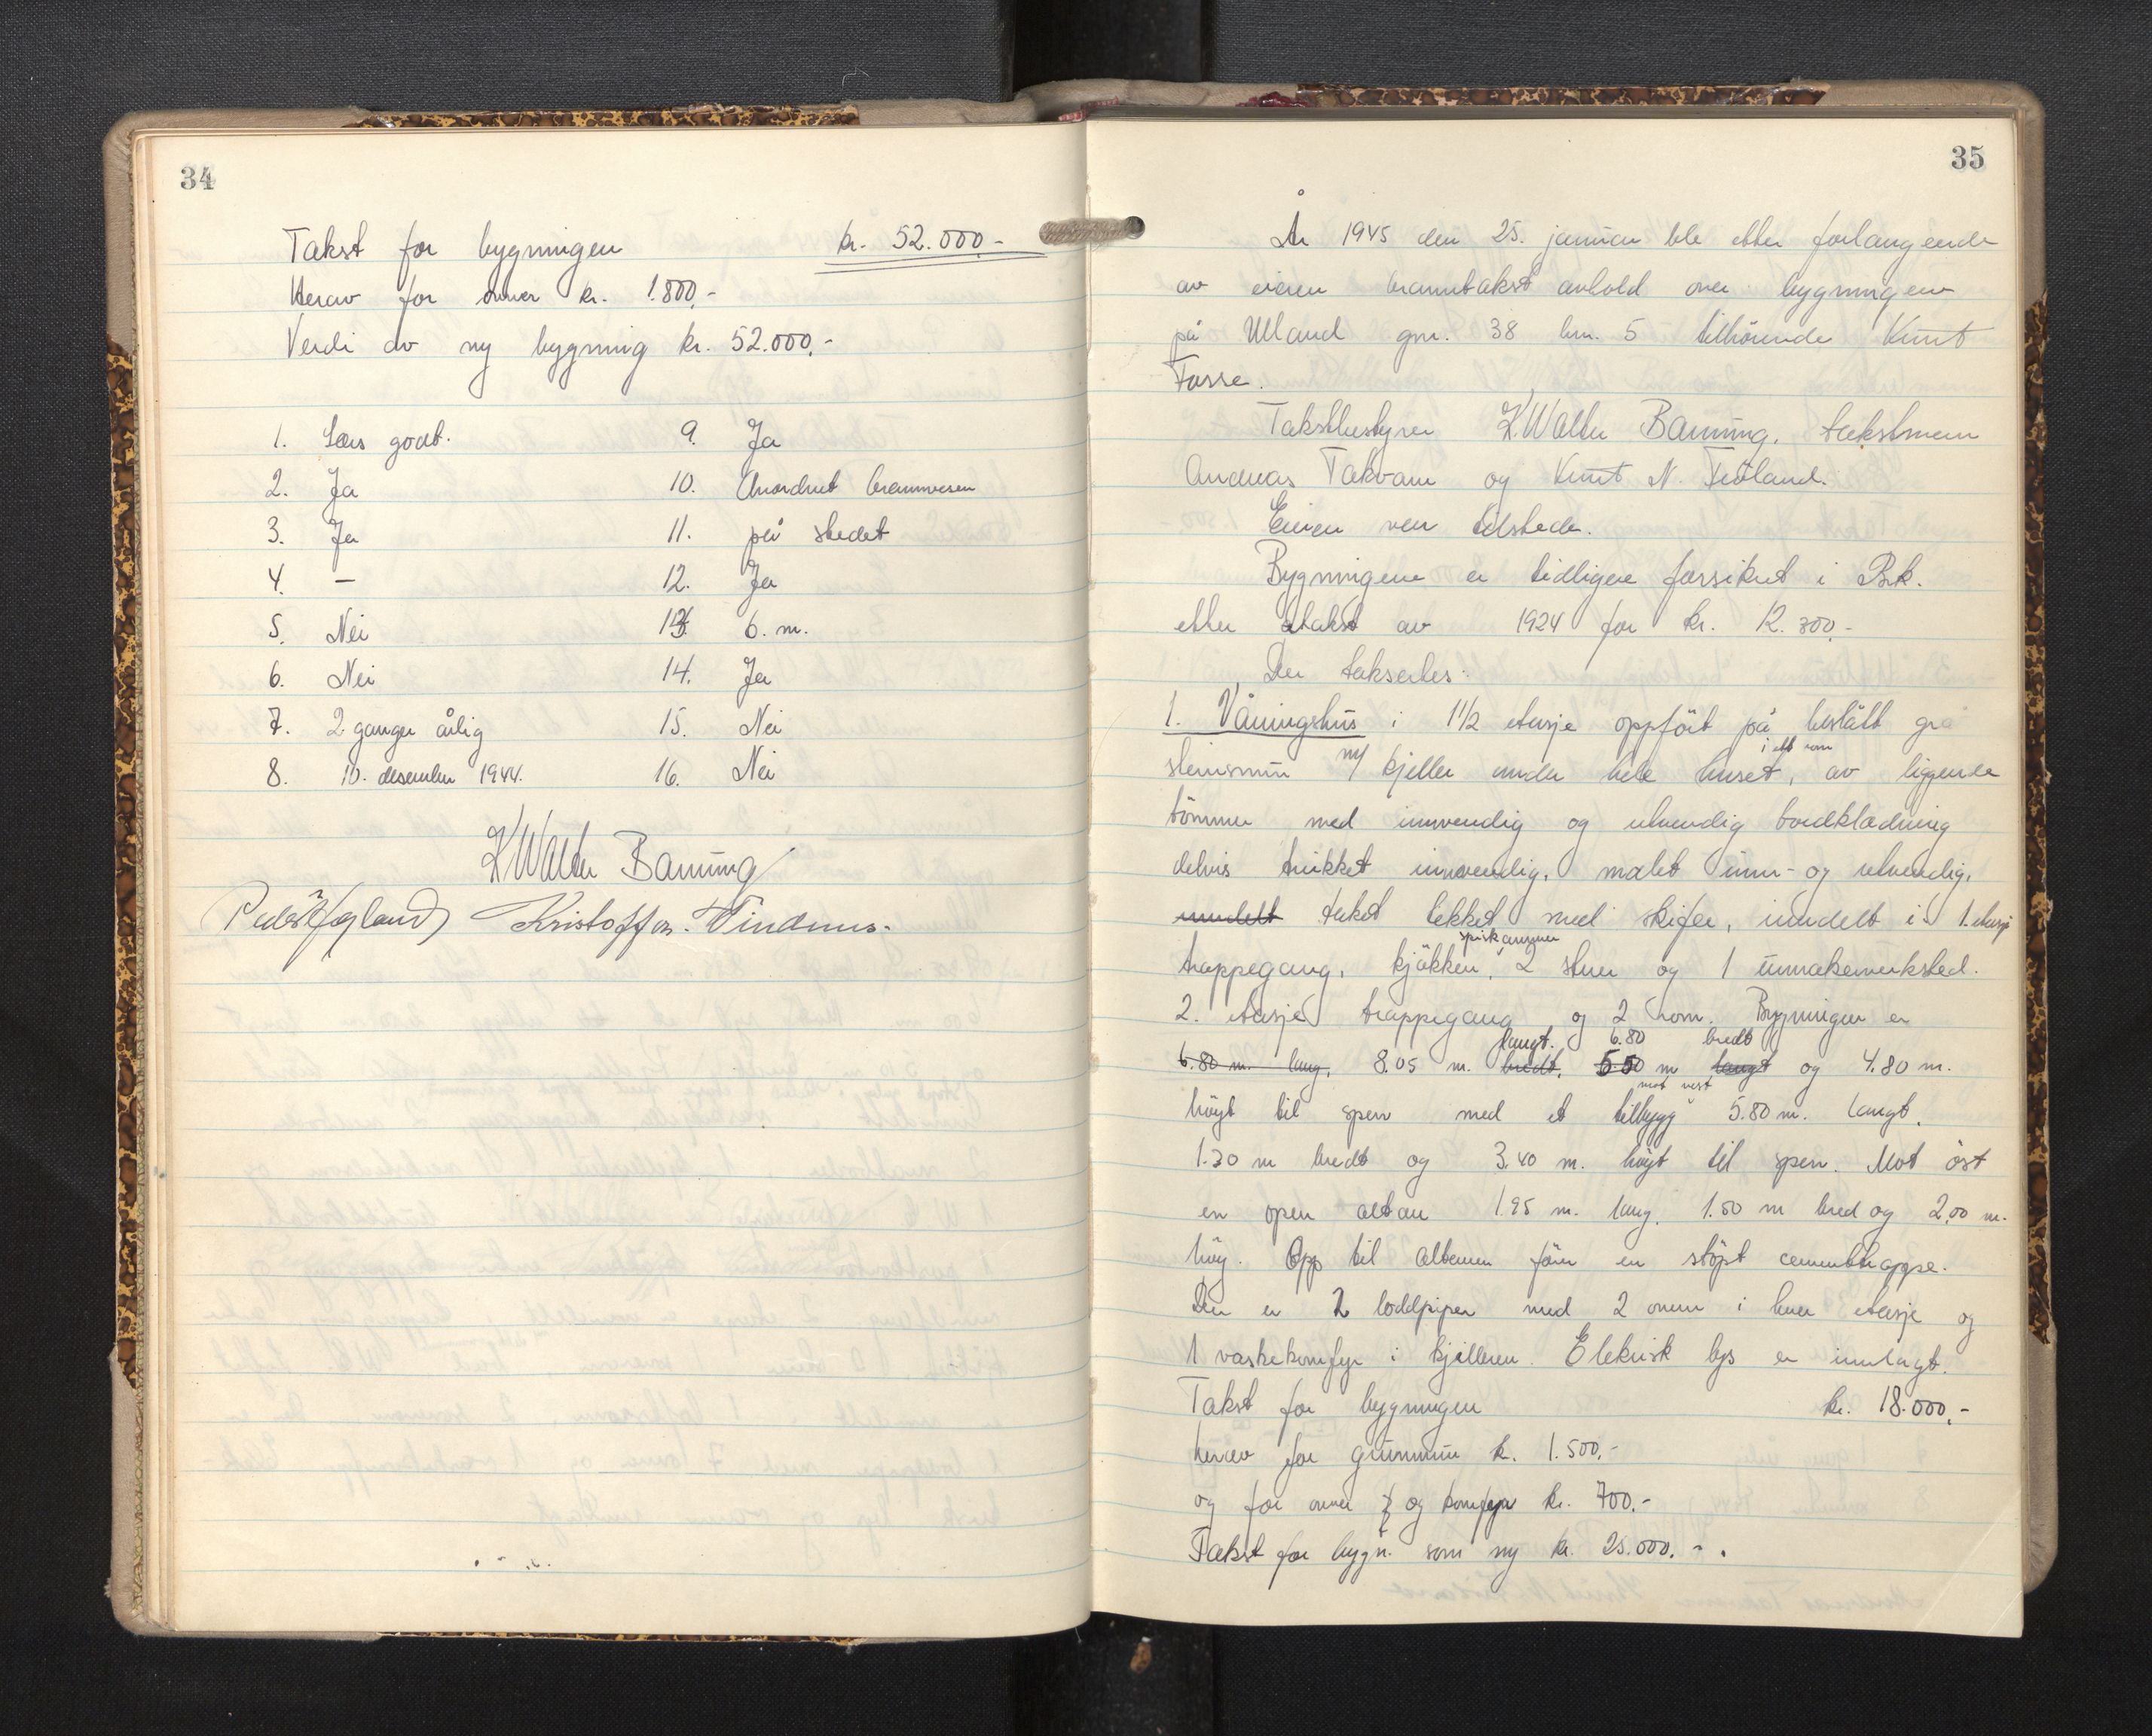 34
Takst for bygningen kr. 52.000.-
Herav for ovner kr. 1.800,-
Verdi av ny bygning kr. 52.000,-
1. Særs godt. 9. Ja
2. Ja 10. Anordnet brannvesen
3. Ja 11. på stedet
4. – 12. Ja
5. Nei 13. 6. m.
6. Nei 14. Ja
7. 2 ganger årlig 15. Nei
8. 10. desember 1944. 16. Nei
K Walter Banning
Kristoffer Vindenes.
35
År 1945 den 25. januar ble etter forlangende
av eieren branntakst avhold over bygningene
på Ulland gnr. 38 bnr. 5 tilhørende Knut
Fosse.
Takstbestyrer K. Walter Banning, takstmenn
Andreas Takvam og Knut N. Fedtland.
Eieren var tilstede.
Bygningene er tidligere forsikret i Brk.
etter takst av 1924 for kr. 12.300,-
Der takserles:
1. Våningshus i 1 1/2 etasje oppført på beslått grå
i ett rom
steinsmur m/ kjeller under hele huset, av liggende
tømmer med innvendig og utvendig bordkledning
delvis trukket innvendig. malet inn- og utvendig.
inndelt taket tekket med skifer, inndelt i 1. etasje
spiskammer
trappegang, kjøkken, 2 stuer og 1 urmakerverksted.
2. etasje trappegang og 2 rom. Bygningen er
langt. 6.80 bredt
6.80 m. lang, 8.05 m. bredt, 5.50 m langt og 4.80 m.
mot vest
høyt til sperr med et tilbygg 5.80 m. langt,
1.30 m bredt og 3.40 m. høyt til sperr. Mot øst
en open altan 1.95 m. lang, 1.50 m bred og 2.00 m.
høy. Opp til altanen fører en støpt cementtrappe.
Der er 2 loddpiper med 2 ovner i hver etasje og
1 vaskekomfyr i kjelleren. Elekrisk lys er innlagt.
Takst for bygningen kr. 18.000,-
herav for grunnmur k. 1.500,-
og for ovner og komfyr kr. 700.-
Takst for bygn. som ny kr. 25.000.-.